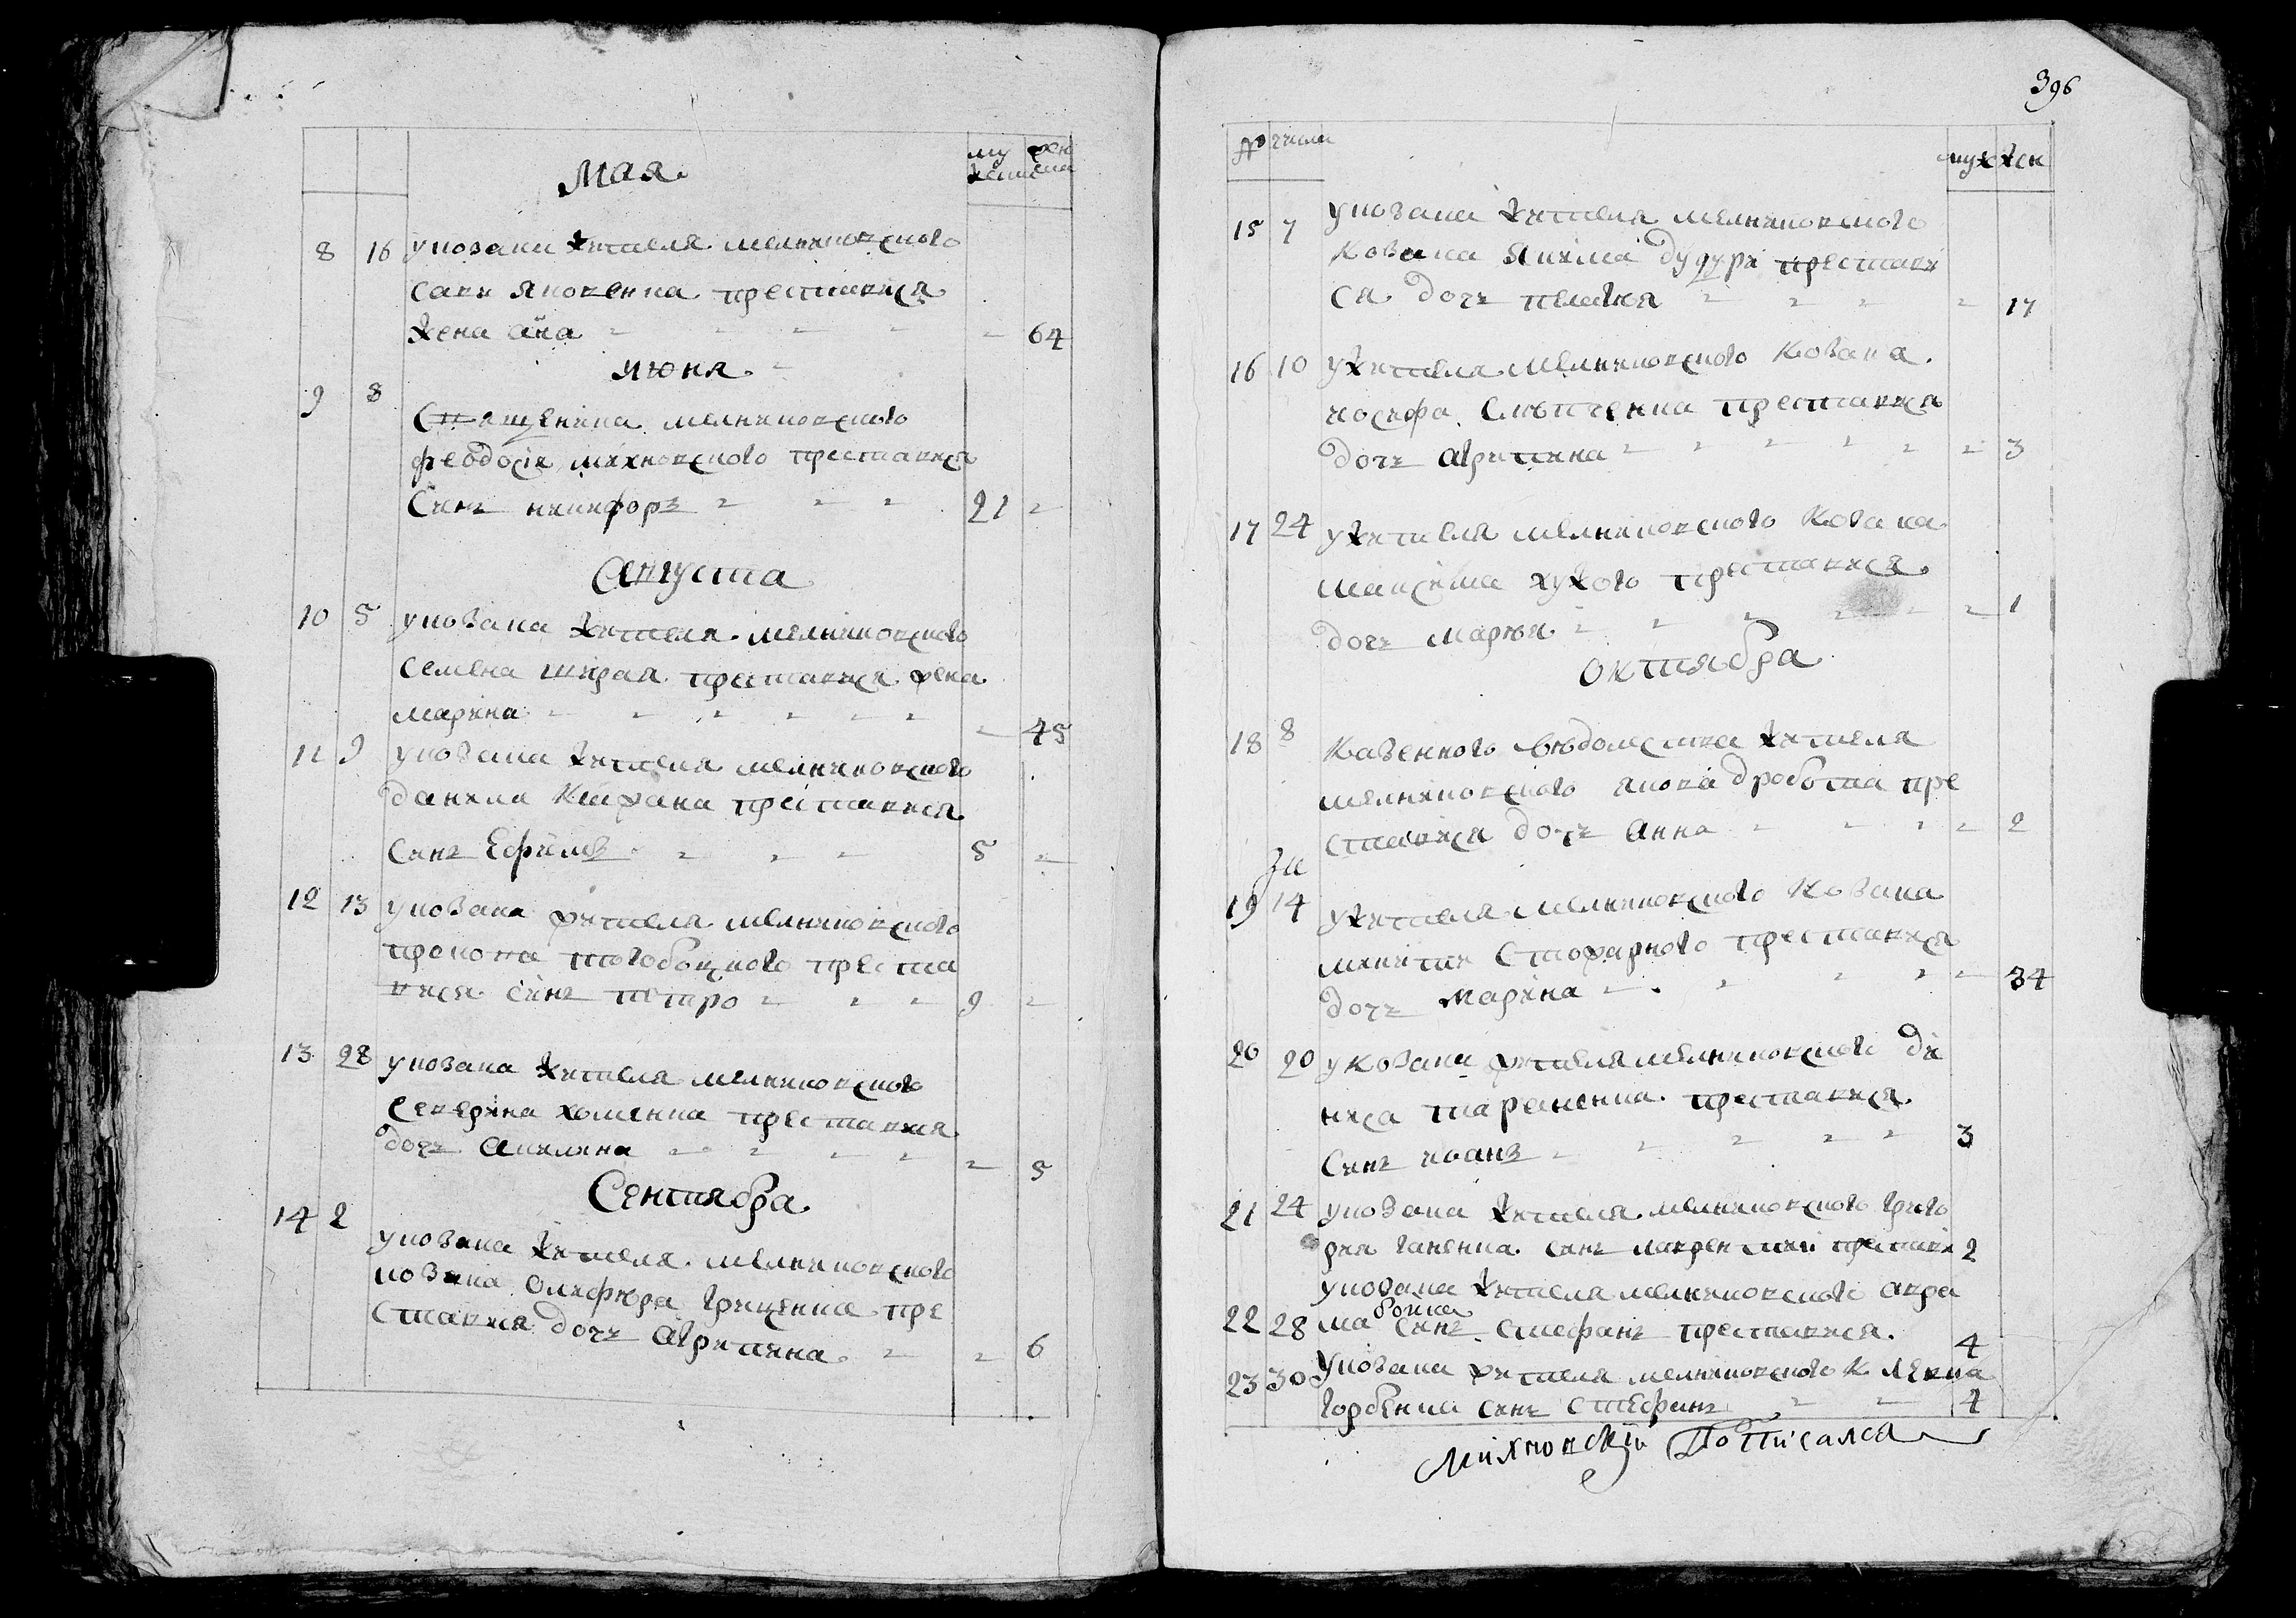 396
Мая
му жен
жеии ска
8 16 укозака жителя мелниковского
сави яковенка преставися
жена анна 64
июня
9 8
Священика мелниковского
феодосія михновского преставися
Синъ никифоръ 21
Августа
10 5 укозака жителя мелниковского
семена шкрая преставися жена
марина 45
11 9 укозака жителя мелниковского
данила преставися
Синъ Ефимъ 5
12 13 укозака жителя мелниковского
прокопа тогобоцкого преста
вися синъ петро 9
13 28 укозака жителя мелниковского
северина хоменка преставися
дочъ акилина 5
Сентября
14 2
укозака жителя мелниковского
козака олифѣра гриценка пре
ставися дочъ агрипина 6
№ числа
муж жен
15 7 укозака жителя мелниковского
козака якима дудури престави
ся дочъ пелагея 17
16 10 ужителя мелниковского козака
иосифа преставися
дочъ агрипина 3
17 24 ужителя мелниковского козака
максима хужого преставися
дочъ марія 1
октября
18 8 казенного вѣдомства жителя
мелниковского якова дробота пре
ставися дочъ анна 2
за
19 14 ужителя мелниковского козака
микити Стожарного преставися
дочъ марина 34
20 20 укозака жителя мелниковского ди
ниса тараненка преставися
Синъ иванъ 3
21 24 укозака жителя мелниковского григо
рия ганенка синъ лаврентий престави 2
укозака жителя мелниковского авра
22 28 ма бойка синъ стефанъ преставися 4
23 30 укозака жителя мелниковского
горбенка синъ стефанъ 4
Михновскій Потписался